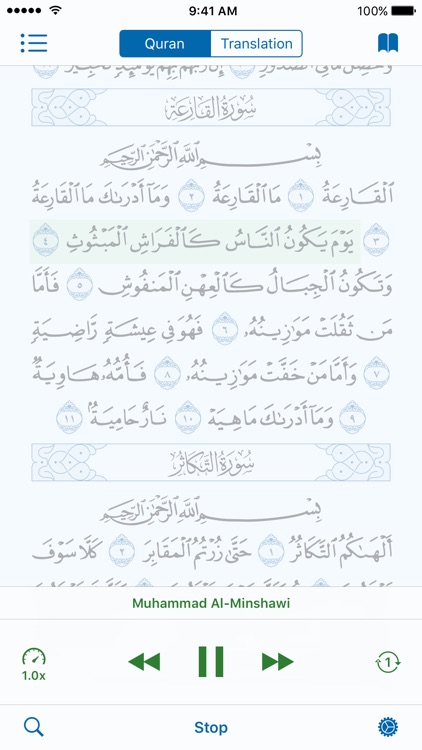 9:41 AM 100%
Quran Translation
سُورَةُ القَارِعَةِ
بِسْمِ ٱللَّهِ ٱلرَّحْمَٰنِ ٱلرَّحِيمِ
ٱلْقَارِعَةُ ١ مَا ٱلْقَارِعَةُ ٢ وَمَآ أَدْرَىٰكَ مَا ٱلْقَارِعَةُ
٣ يَوْمَ يَكُونُ ٱلنَّاسُ كَٱلْفَرَاشِ ٱلْمَبْثُوثِ ٤
وَتَكُونُ ٱلْجِبَالُ كَٱلْعِهْنِ ٱلْمَنفُوشِ ٥ فَأَمَّا
مَن ثَقُلَتْ مَوَٰزِينُهُۥ ٦ فَهُوَ فِى عِيشَةٍ رَّاضِيَةٍ
٧ وَأَمَّا مَنْ خَفَّتْ مَوَٰزِينُهُۥ ٨ فَأُمُّهُۥ هَاوِيَةٌ
٩ وَمَآ أَدْرَىٰكَ مَا هِيَهْ ١٠ نَارٌ حَامِيَةٌۢ ١١
سُورَةُ التَّكَاثُرِ
بِسْمِ ٱللَّهِ ٱلرَّحْمَٰنِ ٱلرَّحِيمِ
أَلْهَىٰكُمُ ٱلتَّكَاثُرُ ١ حَتَّىٰ زُرْتُمُ ٱلْمَقَابِرَ ٢ كَلَّا سَوْفَ
Muhammad Al-Minshawi
1.0x 1
Stop